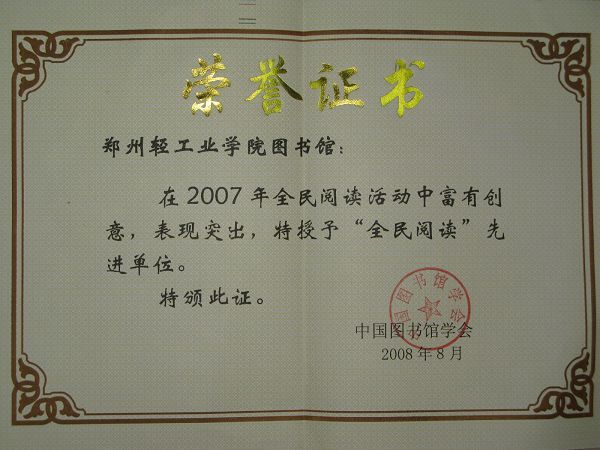 荣誉证书
郑州轻工业学院图书馆：
在2007年全民阅读活动中富有创
意，表现突出，特授予“全民阅读”先
进单位。
特颁此证。
中国图书馆学会
中国图书馆学会
2008年8月